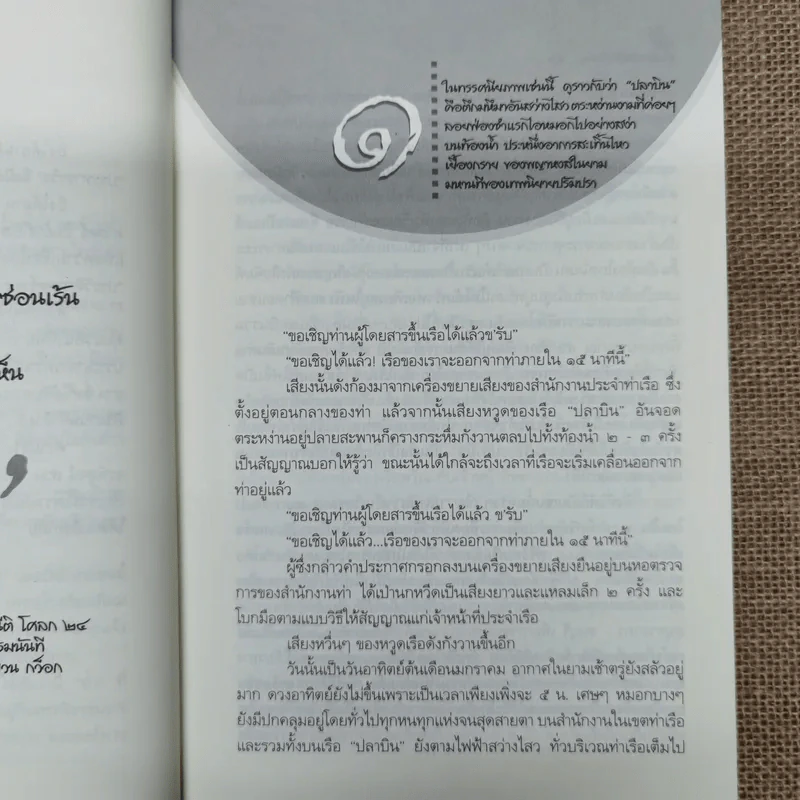 ซ่อนเร้น
ห็น
นีติ โคลก ๒๔
รมนันที
วน กว็อก
๑
ในทรรศนียภาพเช่นนี้ ดูราวกับว่า “ปลาบิน”
คือตึกมหึมาอันสว่างไสว ตระหง่านงามที่ค่อยๆ
ลอยฟ่องชำแรกไอหมอกไปอย่างสง่า
บนท้องน้ำ ประหนึ่งอาการสะเทิ้นไหว
เยื้องกราย ของพญาหงส์ในยาม
มหานทีของเทพนิยายปรัมปรา
“ขอเชิญท่านผู้โดยสารขึ้นเรือได้แล้วข'รับ”
“ขอเชิญได้แล้ว! เรือของเราจะออกจากท่าภายใน ๑๕ นาทีนี้”
เสียงนั้นดังก้องมาจากเครื่องขยายเสียงของสำนักงานประจำท่าเรือ ซึ่ง
ตั้งอยู่ตอนกลางของท่า แล้วจากนั้นเสียงหวูดของเรือ “ปลาบิน” อันจอด
ตระหง่านอยู่ปลายสะพานก็ครางกระหึ่มกังวานตลบไปทั้งท้องน้ำ ๒ - ๓ ครั้ง
เป็นสัญญาณบอกให้รู้ว่า ขณะนั้นได้ใกล้จะถึงเวลาที่เรือจะเริ่มเคลื่อนออกจาก
ท่าอยู่แล้ว
“ขอเชิญท่านผู้โดยสารขึ้นเรือได้แล้ว ข'รับ”
“ขอเชิญได้แล้ว...เรือของเราจะออกจากท่าภายใน ๑๕ นาทีนี้”
ผู้ซึ่งกล่าวคำประกาศกรอกลงบนเครื่องขยายเสียงยืนอยู่บนหอตรวจ
การของสำนักงานท่า ได้เป่านกหวีดเป็นเสียงยาวและแหลมเล็ก ๒ ครั้ง และ
โบกมือตามแบบวิธีให้สัญญาณแก่เจ้าหน้าที่ประจำเรือ
เสียงหวื่นๆ ของหวูดเรือดังกังวานขึ้นอีก
วันนั้นเป็นวันอาทิตย์ต้นเดือนมกราคม อากาศในยามเช้าตรู่ยังสลัวอยู่
มาก ดวงอาทิตย์ยังไม่ขึ้นเพราะเป็นเวลาเพียงเพิ่งจะ ๕ น. เศษๆ หมอกบางๆ
ยังมีปกคลุมอยู่โดยทั่วไปทุกหนทุกแห่งจนสุดสายตา บนสำนักงานในเขตท่าเรือ
และรวมทั้งบนเรือ “ปลาบิน” ยังตามไฟฟ้าสว่างไสว ทั่วบริเวณท่าเรือเต็มไป